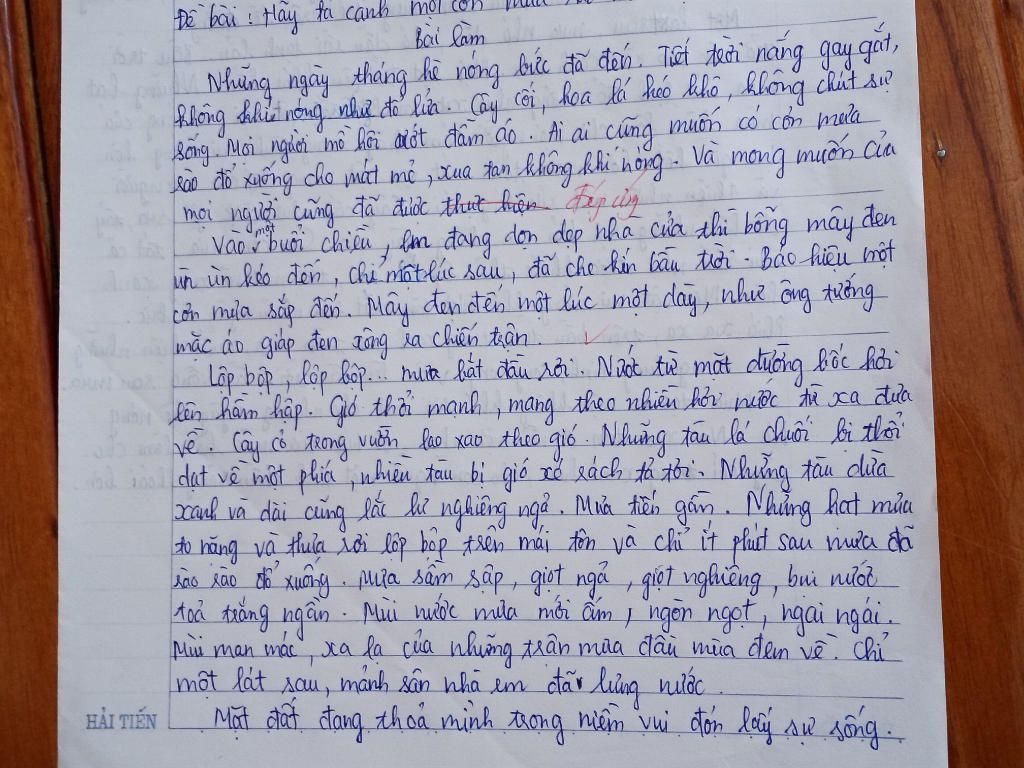 Đề bài: Hãy tả cảnh một cơn mưa
Bài làm
Những ngày tháng hè nóng bức đã đến. Tiết trời nắng gay gắt,
không khí nóng như đổ lửa. Cây cối, hoa lá héo khô, không chút sự
sống. Mọi người mồ hôi ướt đẫm áo. Ai ai cũng muốn có cơn mưa
rào đổ xuống cho mát mẻ, xua tan không khí nóng. Và mong muốn của
mọi người cũng đã được thực hiện đáp ứng
Vào một buổi chiều, em đang dọn dẹp nhà cửa thì bỗng mây đen
ùn ùn kéo đến, chỉ một lúc sau, đã che kín bầu trời. Báo hiệu một
cơn mưa sắp đến. Mây đen đến một lúc một dày, như ông tướng
mặc áo giáp đen xông ra chiến trận.
Lộp bộp, lộp bộp... mưa bắt đầu rơi. Nước từ mặt đường bốc hơi
lên hầm hập. Gió thổi mạnh, mang theo nhiều hơi nước từ xa đưa
về. Cây cỏ trong vườn lao xao theo gió. Những tàu lá chuối bị thổi
dạt về một phía, nhiều tàu bị gió xé rách tả tơi. Những tàu dừa
xanh và dài cũng lắc lư nghiêng ngả. Mưa tiến gần. Những hạt mưa
to nặng và thưa rơi lộp bộp trên mái tôn và chỉ ít phút sau mưa đã
rào rào đổ xuống. Mưa sầm sập, giọt ngả, giọt nghiêng, bụi nước
toả trắng ngần. Mùi nước mưa mới ấm, ngòn ngọt, ngai ngái.
Mùi man mác, xa lạ của những trận mưa đầu mùa đem về. Chỉ
một lát sau, mảnh sân nhà em đã lưng nước.
Mặt đất đang thoả mình trong niềm vui đón lấy sự sống.
HẢI TIẾN